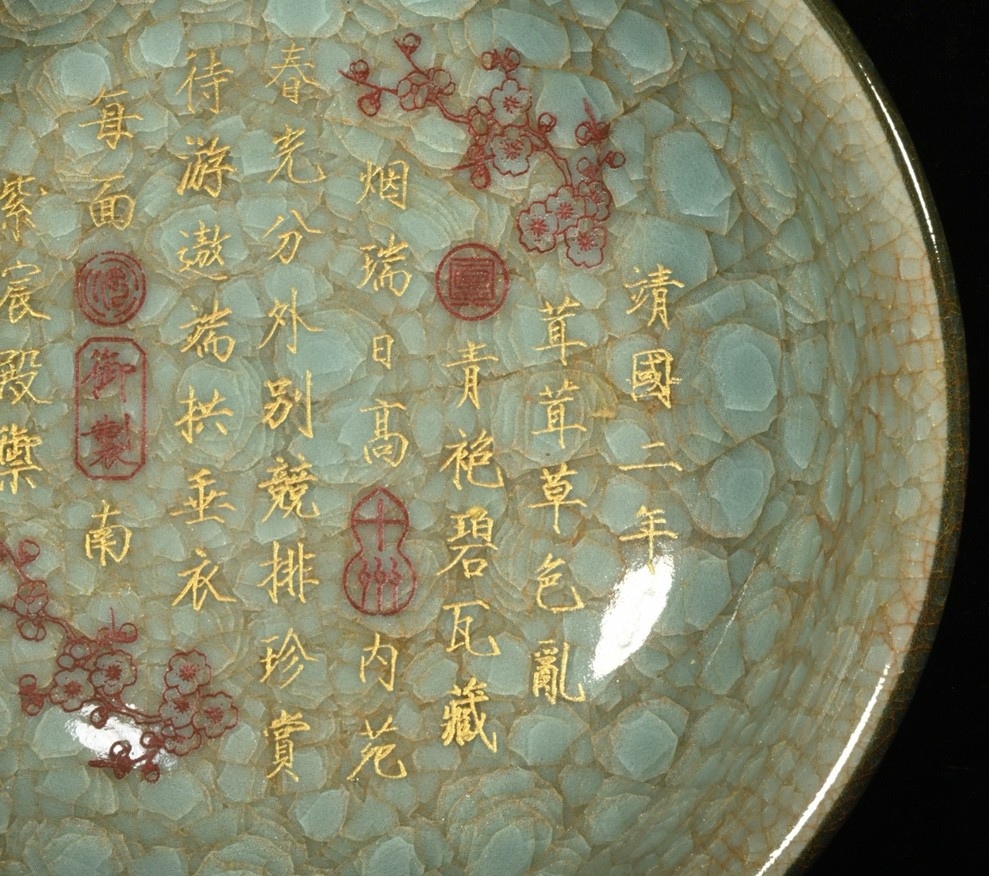 靖國二年
茸茸草色亂
青袍碧瓦藏
烟瑞日高 內苑
春光分外別競排珍賞
待游遨端拱垂衣
每面 御製 南
紫宸殿櫽